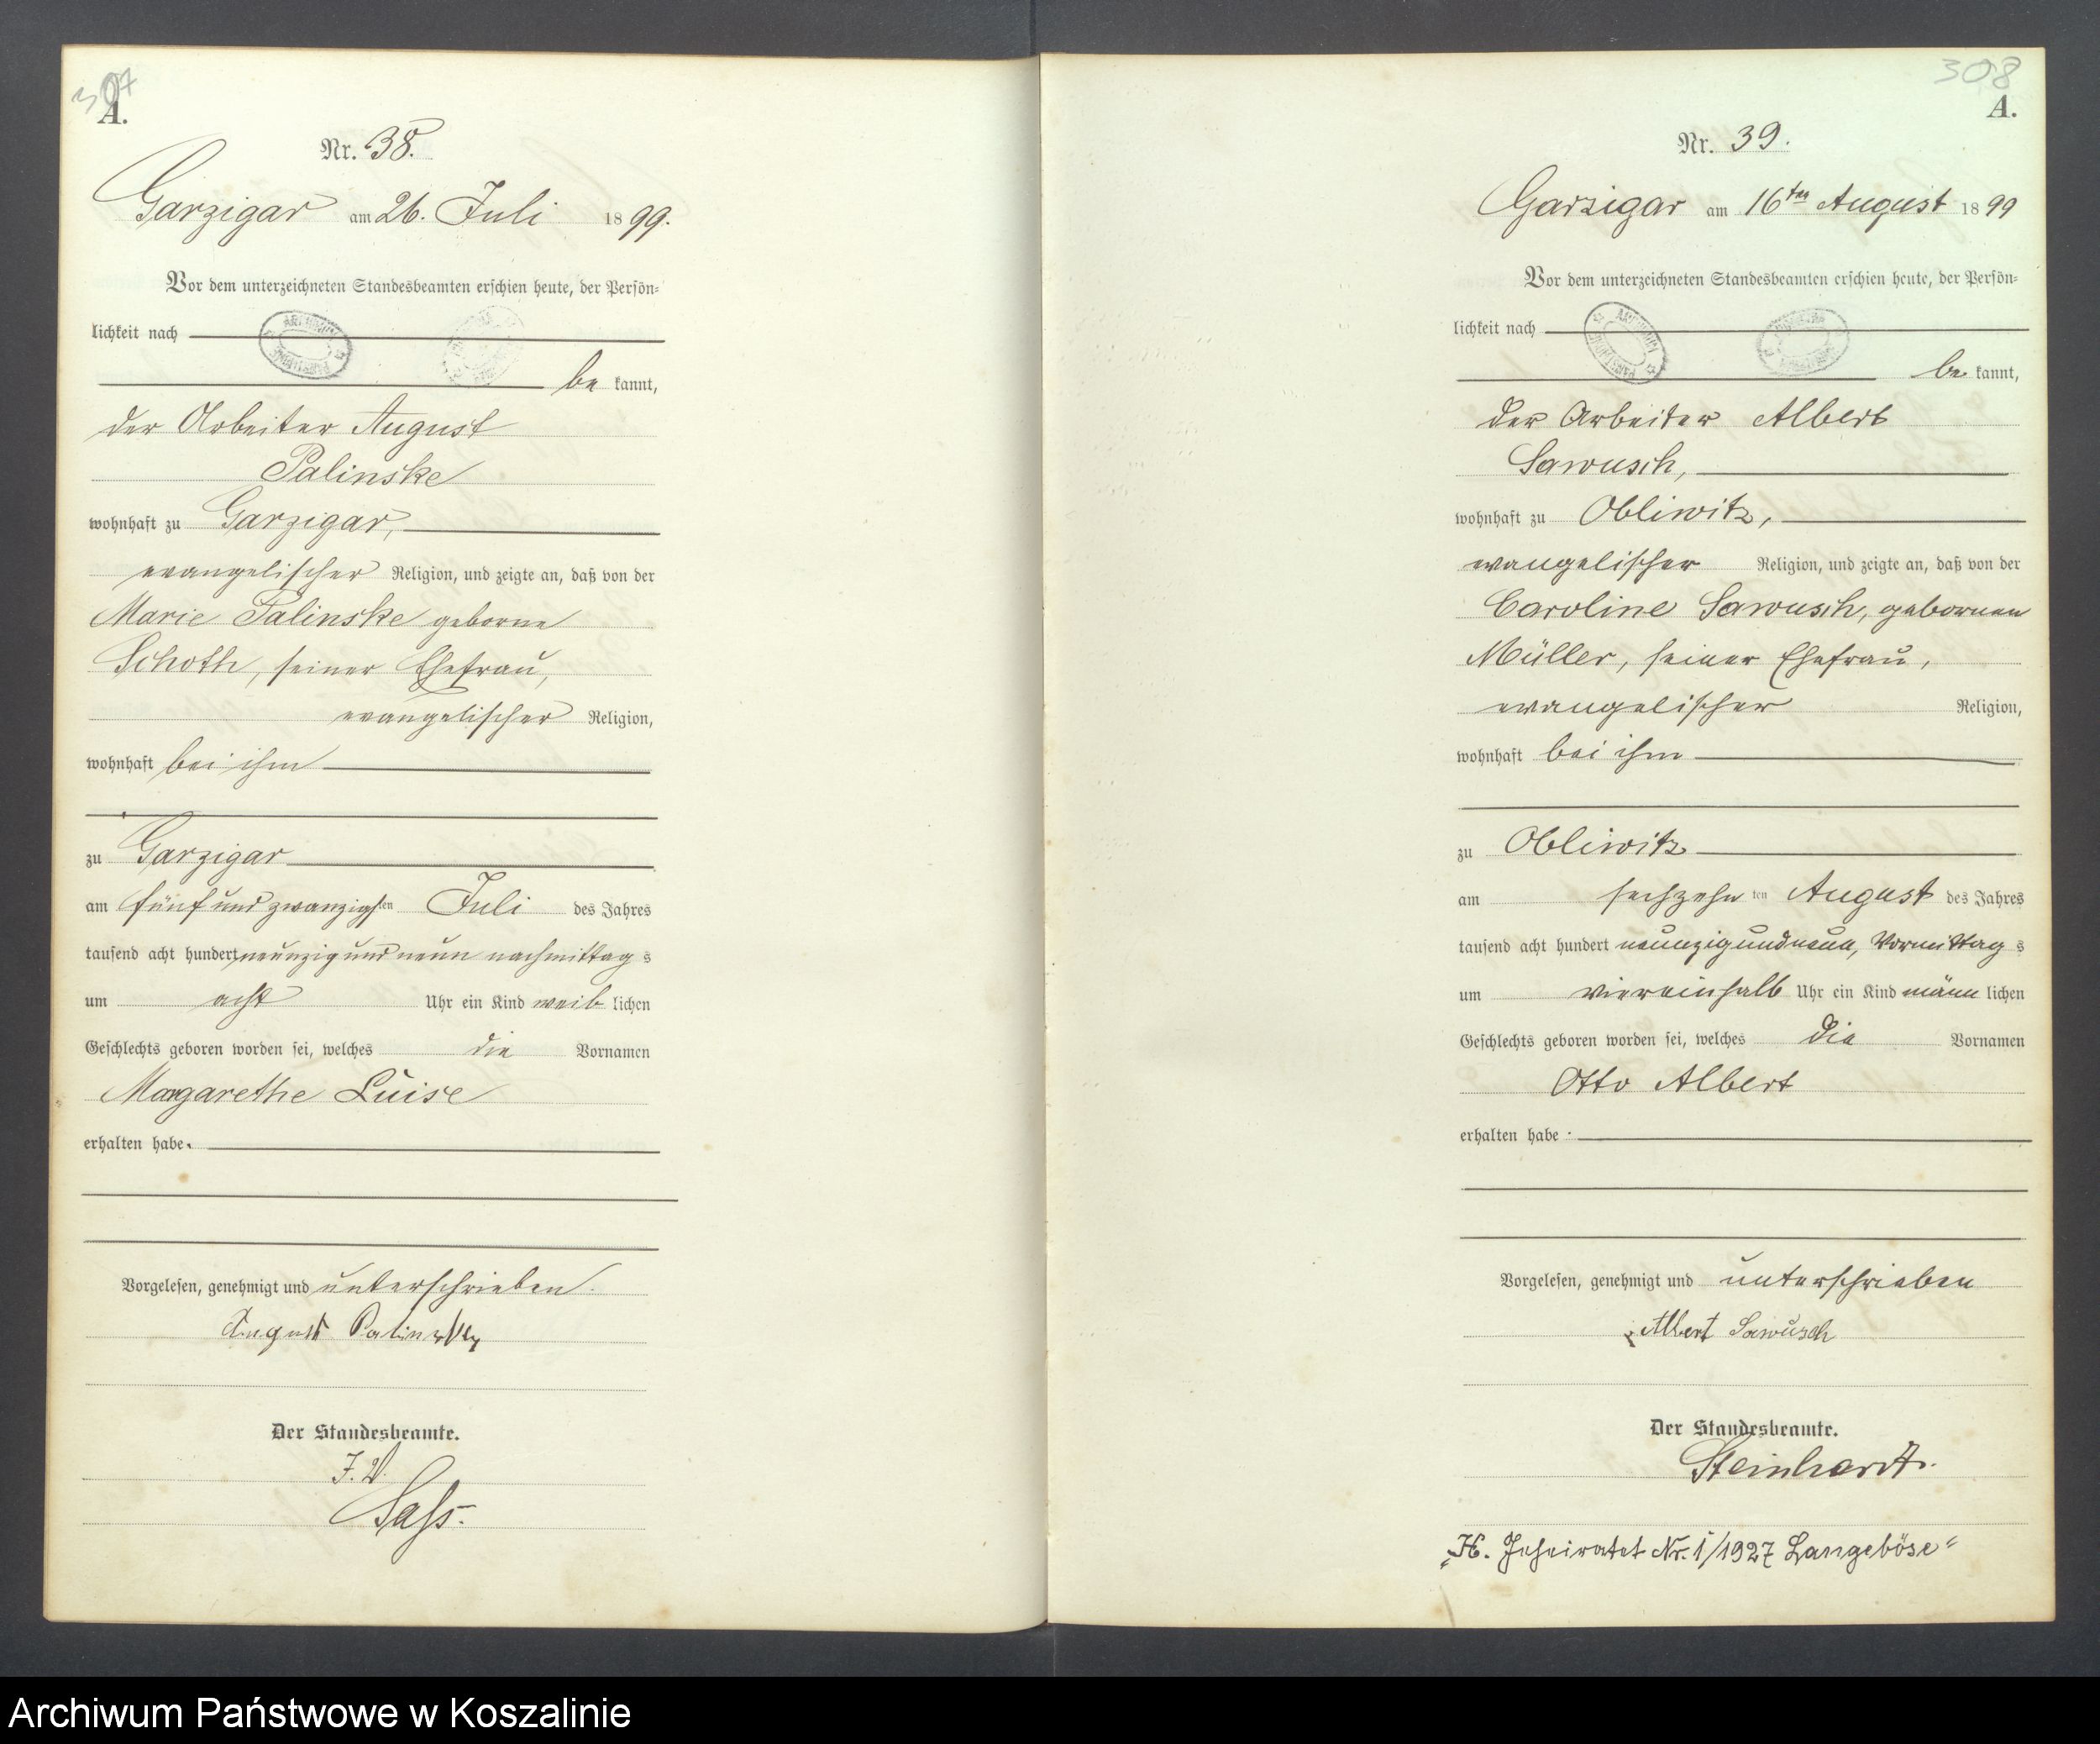 307
A.
Nr. 38.
Garzigar am 26. Juli 1899.
Vor dem unterzeichneten Standesbeamten erschien heute, der Persön-
lichkeit nach
be kannt,
der Arbeiter August
Palinske
wohnhaft zu Garzigar,
evangelischer Religion, und zeigte an, daß von der
Marie Palinske geborne
Schoth, seiner Ehefrau,
evangelischer Religion,
wohnhaft bei ihm
zu Garzigar
am fünf und zwanzigsten Juli des Jahres
tausend acht hundert neunzig und neun nachmittags
um acht Uhr ein Kind weiblichen
Geschlechts geboren worden sei, welches die Vornamen
Margarethe Luise
erhalten habe.
Vorgelesen, genehmigt und unterschrieben.
August Palinsky
Der Standesbeamte.
J. V.
Sass.
308
A.
Nr. 39.
Garzigar am 16ten August 1899
Vor dem unterzeichneten Standesbeamten erschien heute, der Persön-
lichkeit nach
be kannt,
der Arbeiter Albert
Sawusch,
wohnhaft zu Obliwitz,
evangelischer Religion, und zeigte an, daß von der
Caroline Sawusch, gebornen
Müller, seiner Ehefrau,
evangelischer Religion,
wohnhaft bei ihm
zu Obliwitz
am sechzehnten August des Jahres
tausend acht hundert neunzigundneun, Vormittags
um viereinhalb Uhr ein Kind männlichen
Geschlechts geboren worden sei, welches die Vornamen
Otto Albert
erhalten habe.
Vorgelesen, genehmigt und unterschrieben
Albert Sawusch
Der Standesbeamte.
Steinhardt.
„H. Geheiratet Nr. 1/1927 Langeböse“
Archiwum Państwowe w Koszalinie